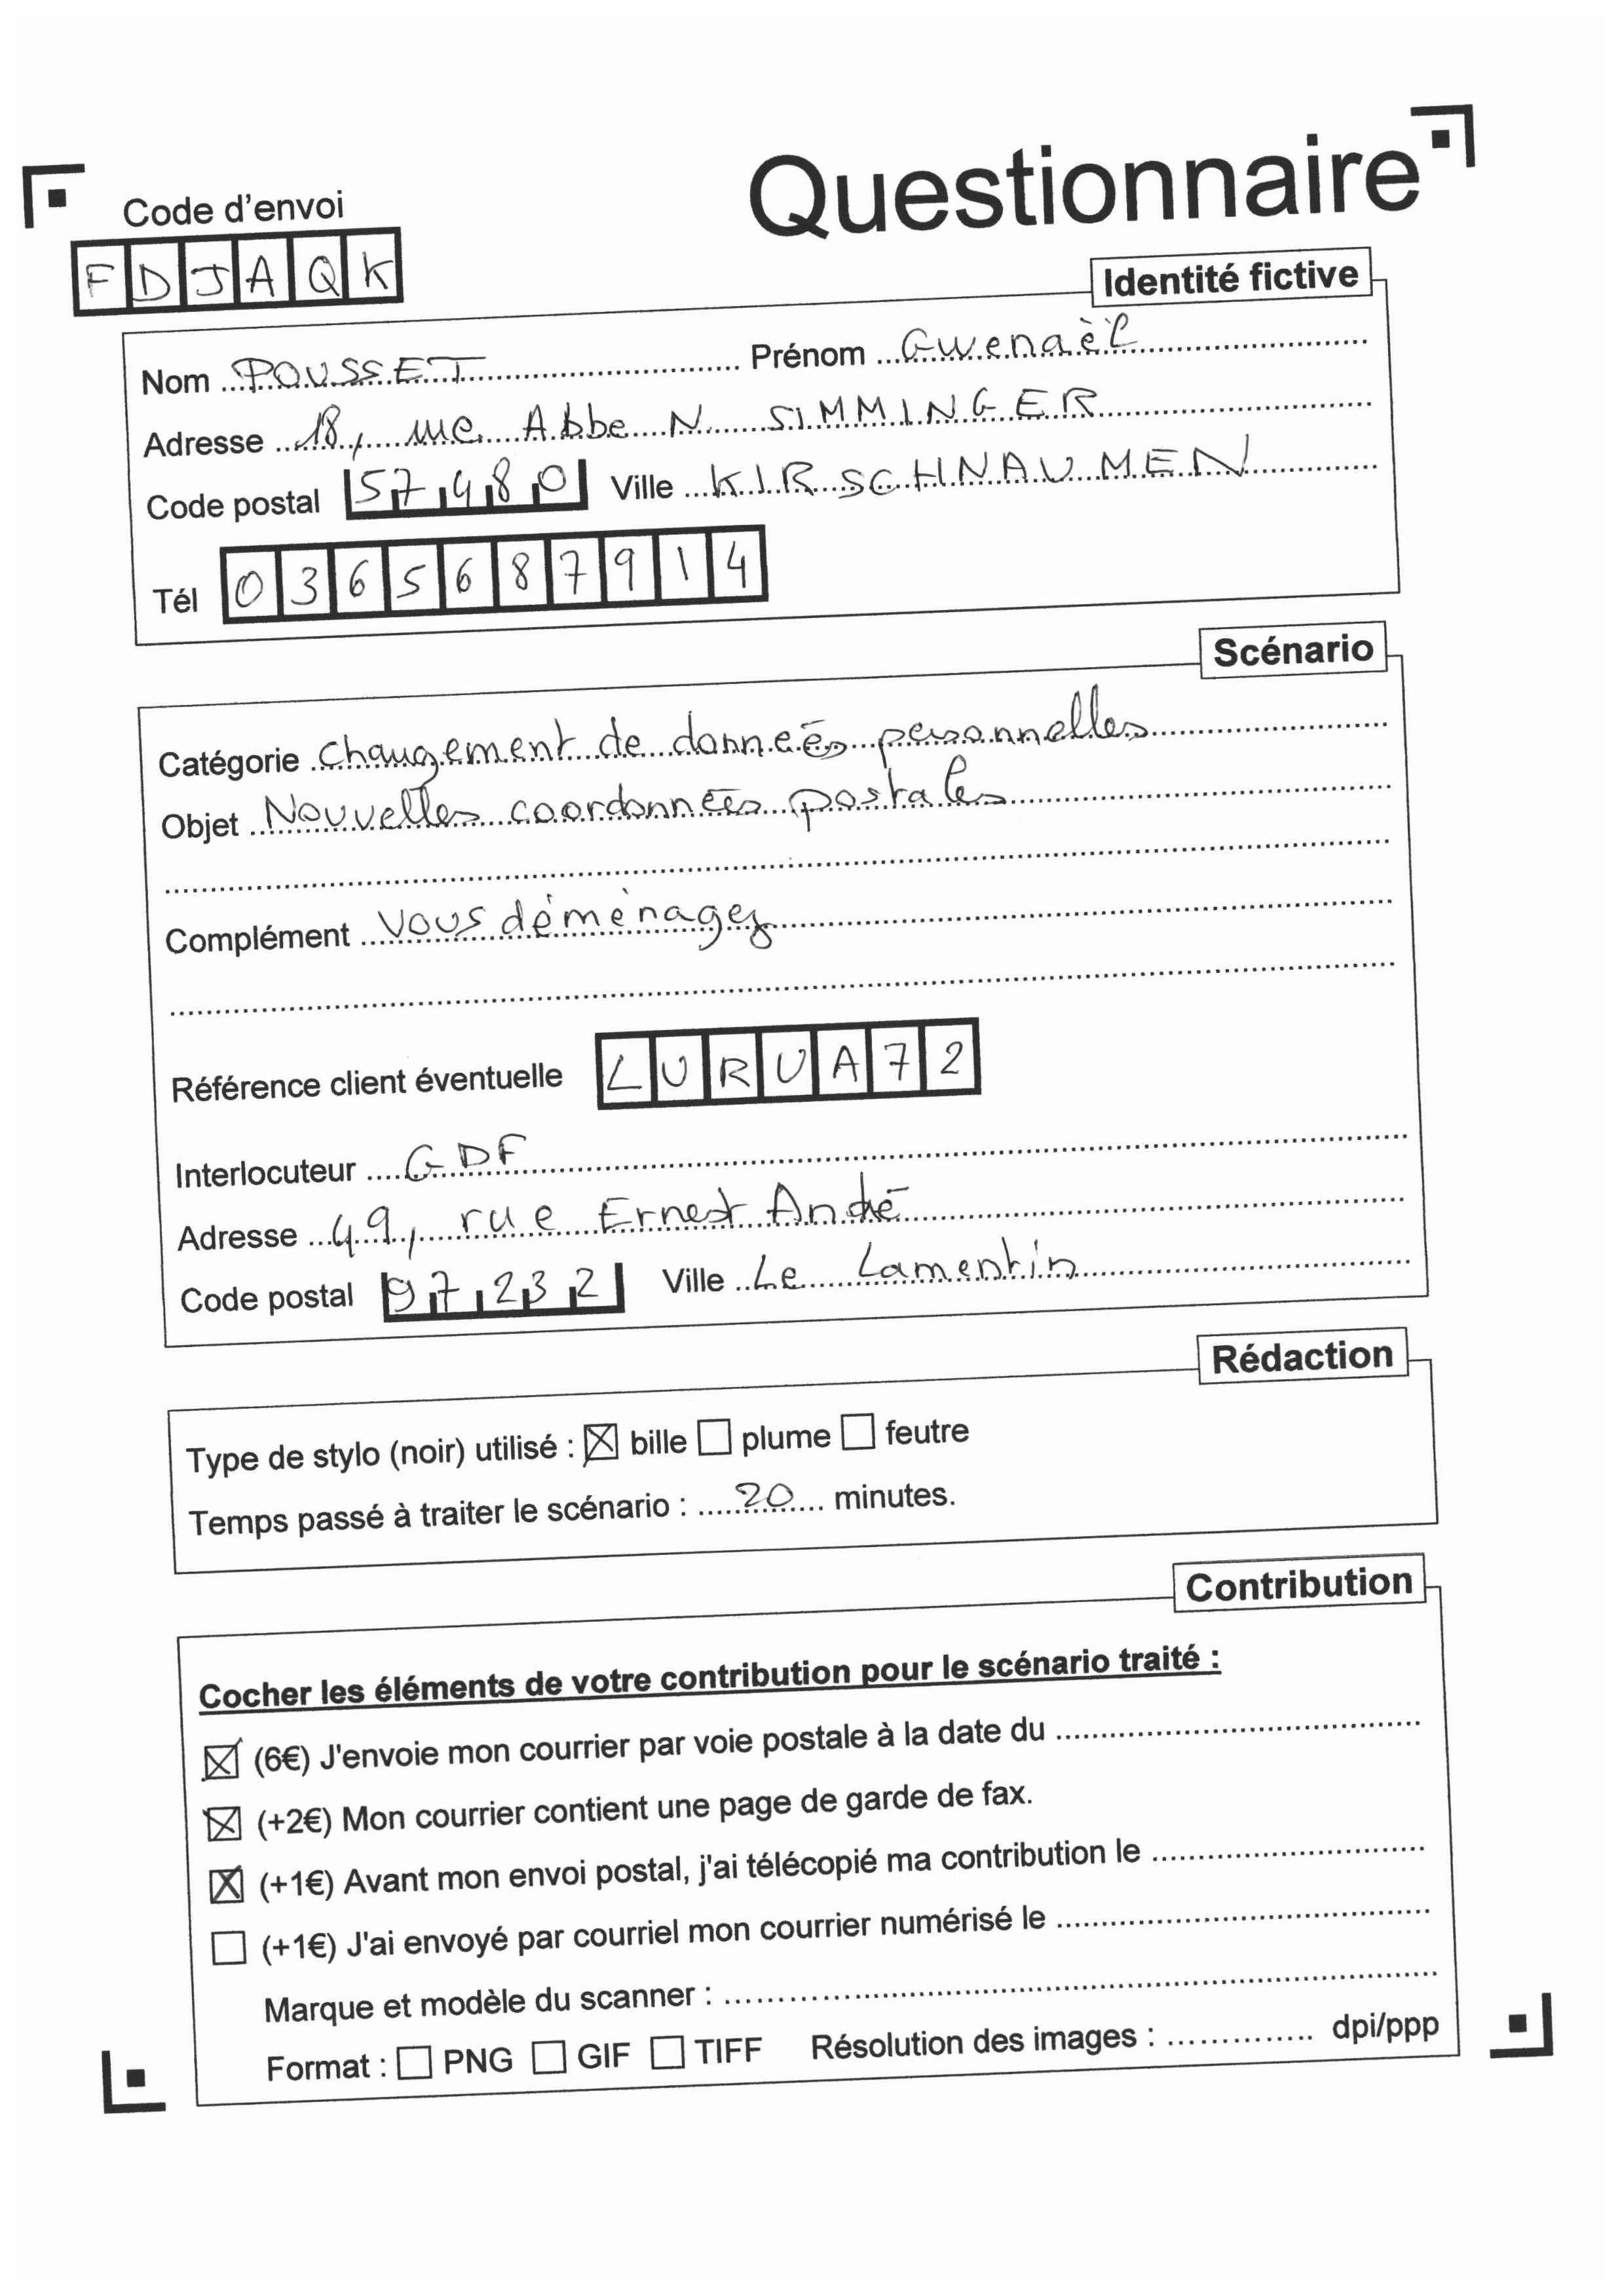 Questionnaire
Code d'envoi
FDJAQK
Identité fictive
Nom POUSSET Prénom Gwenaël
Adresse 18, rue Abbe N. SIMMINGER
Code postal 57480 Ville KIRSCHNAUMEN
Tél 0365687914
Scénario
Catégorie Changement de données personnelles
Objet Nouvelles coordonnées postales
Complément Vous déménagez
Référence client éventuelle LURUA72
Interlocuteur GDF
Adresse 49, rue Ernest André
Code postal 97232 Ville Le Lamentin
Rédaction
Type de stylo (noir) utilisé : ☒ bille ☐ plume ☐ feutre
Temps passé à traiter le scénario : 20 minutes.
Contribution
Cocher les éléments de votre contribution pour le scénario traité :
☒ (6€) J'envoie mon courrier par voie postale à la date du ..............................
☒ (+2€) Mon courrier contient une page de garde de fax.
☒ (+1€) Avant mon envoi postal, j'ai télécopié ma contribution le ..............................
☐ (+1€) J'ai envoyé par courriel mon courrier numérisé le ..............................
Marque et modèle du scanner : ..............................
Format : ☐ PNG ☐ GIF ☐ TIFF Résolution des images : .............. dpi/ppp